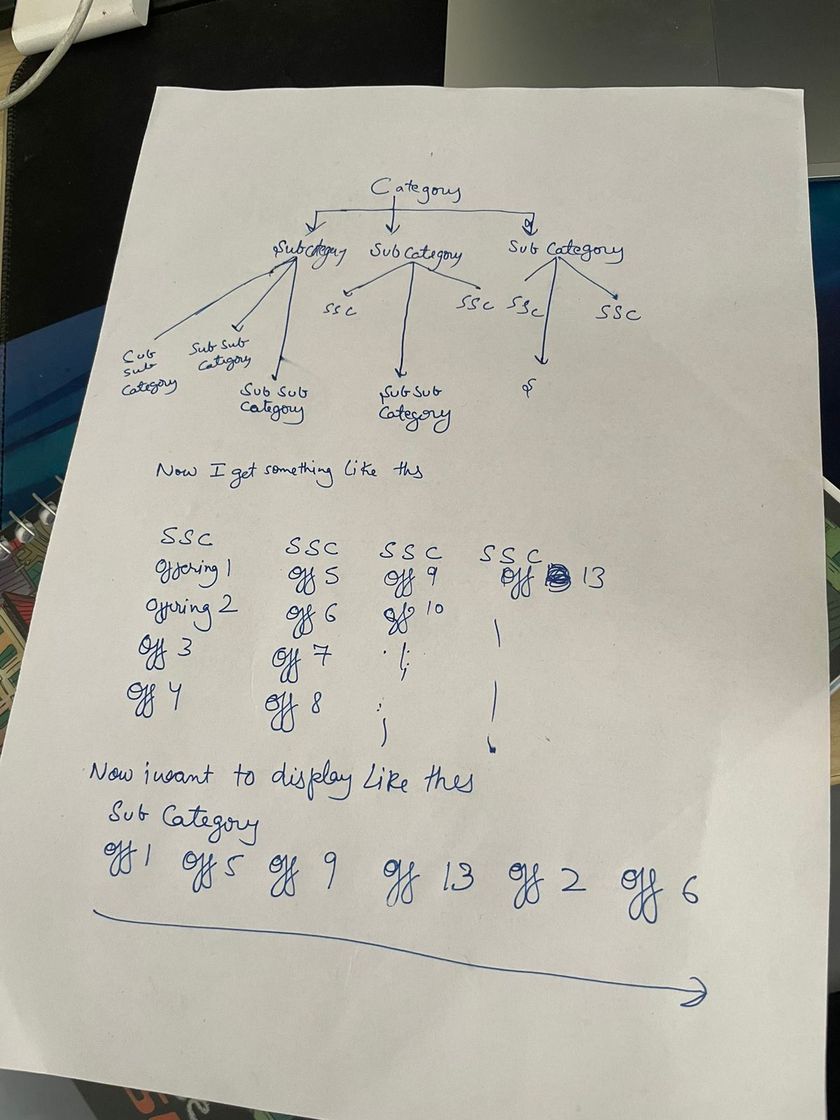 Category
Subcategory Sub Category Sub Category
SSC SSC SSC SSC
Cub Sub Sub
sub Category
Category
Sub Sub Sub Sub $
Category Category
Now I get something like ths
SSC SSC SSC SSC
Offering 1 Off 5 Off 9 Off 13
Offring 2 Off 6 Off 10
Off 3 Off 7
Off 4 Off 8
Now i want to display Like thes
Sub Category
Off 1 Off 5 Off 9 Off 13 Off 2 Off 6